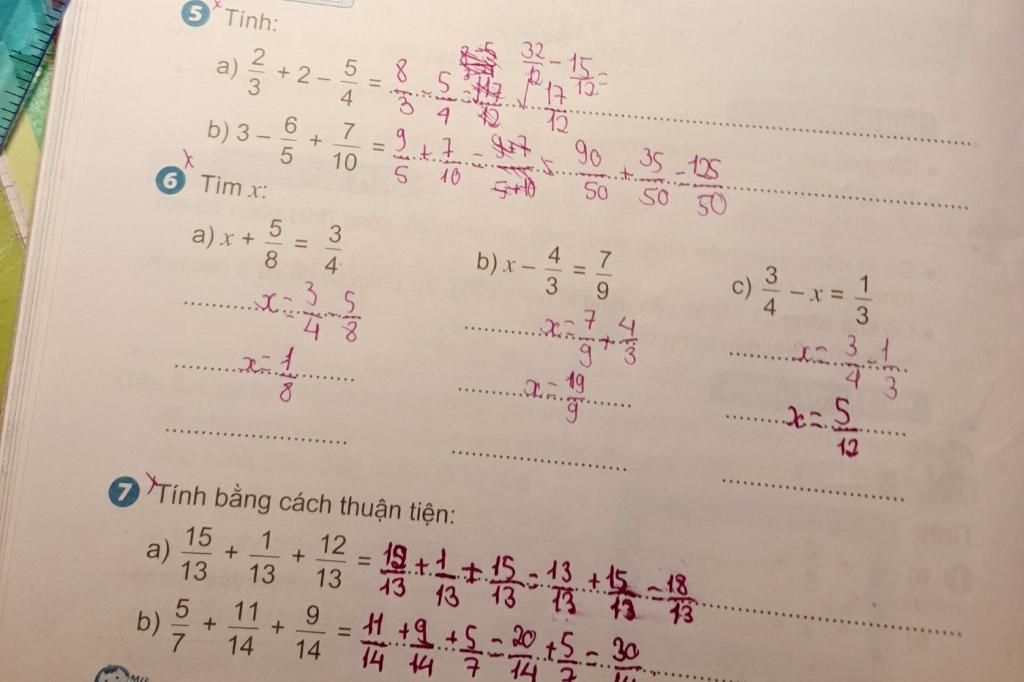 5 Tính:
a) 2/3 + 2 − 5/4 = 8/3 − 5/4 = 32/12 − 15/12 = 17/12
b) 3 − 6/5 + 7/10 = 9/5 + 7/10 = 90/50 + 35/50 = 125/50
6 Tìm x:
a) x + 5/8 = 3/4
x = 3/4 − 5/8
x = 1/8
b) x − 4/3 = 7/9
x = 7/9 + 4/3
x = 19/9
c) 3/4 − x = 1/3
x = 3/4 − 1/3
x = 5/12
7 Tính bằng cách thuận tiện:
a) 15/13 + 1/13 + 12/13 = 12/13 + 1/13 + 15/13 = 13/13 + 15/13 = 18/13
b) 5/7 + 11/14 + 9/14 = 11/14 + 9/14 + 5/7 = 20/14 + 5/7 = 30